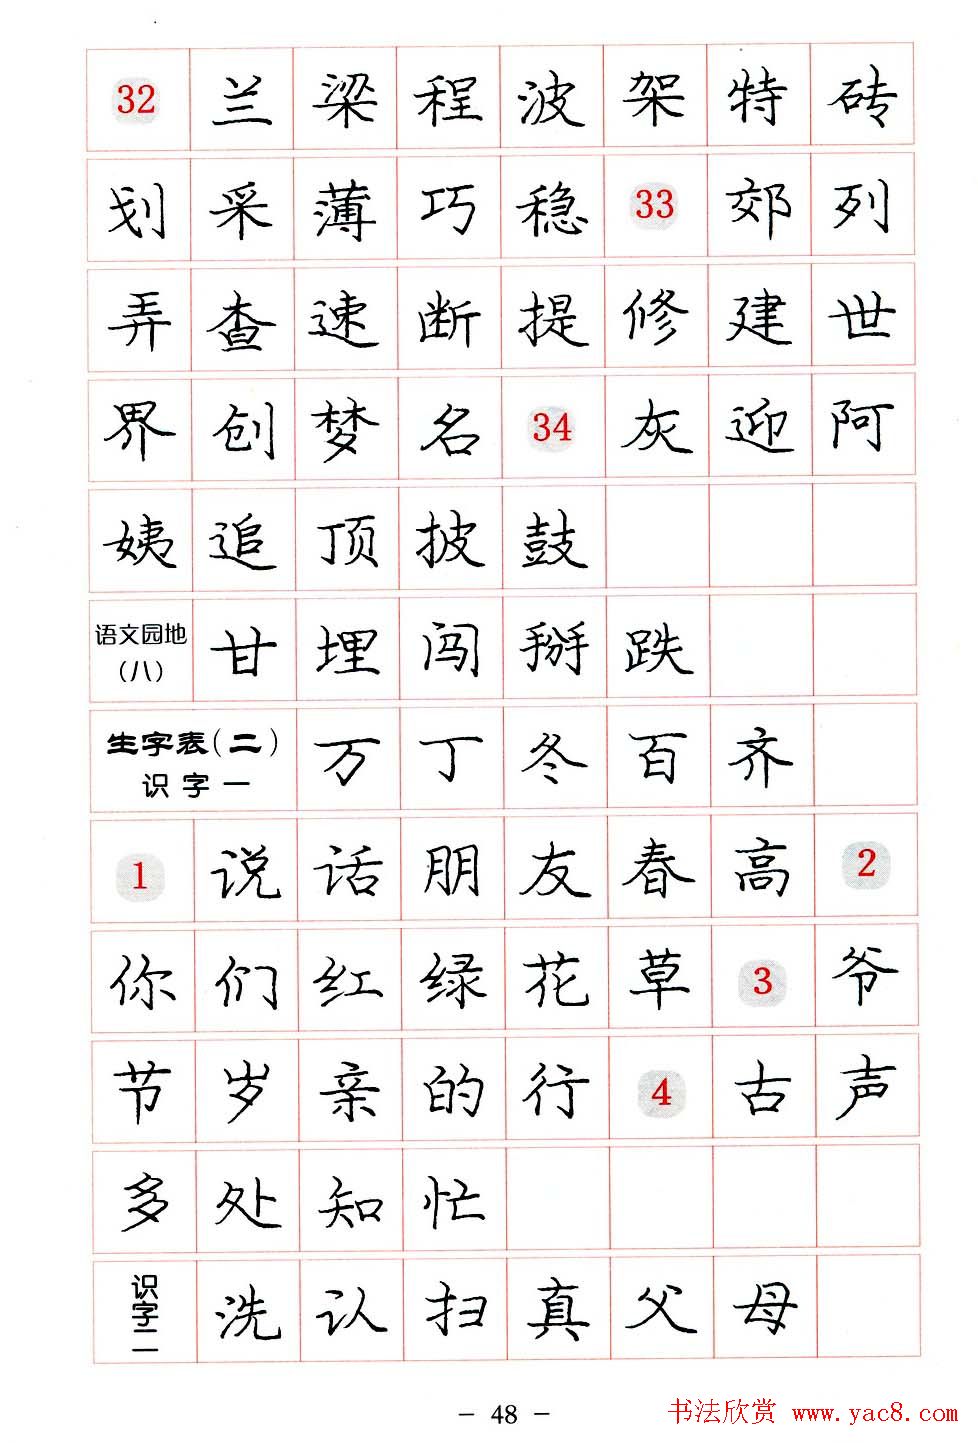 32 兰 梁 程 波 架 特 砖
划 采 薄 巧 稳 33 郊 列
弄 查 速 断 提 修 建 世
界 创 梦 名 34 灰 迎 阿
姨 追 顶 披 鼓
语文园地（八） 甘 埋 闯 掰 跌
生字表（二）识字一 万 丁 冬 百 齐
1 说 话 朋 友 春 高 2
你 们 红 绿 花 草 3 爷
节 岁 亲 的 行 4 古 声
多 处 知 忙
识字二 洗 认 扫 真 父 母
- 48 -
书法欣赏 www.yac8.com